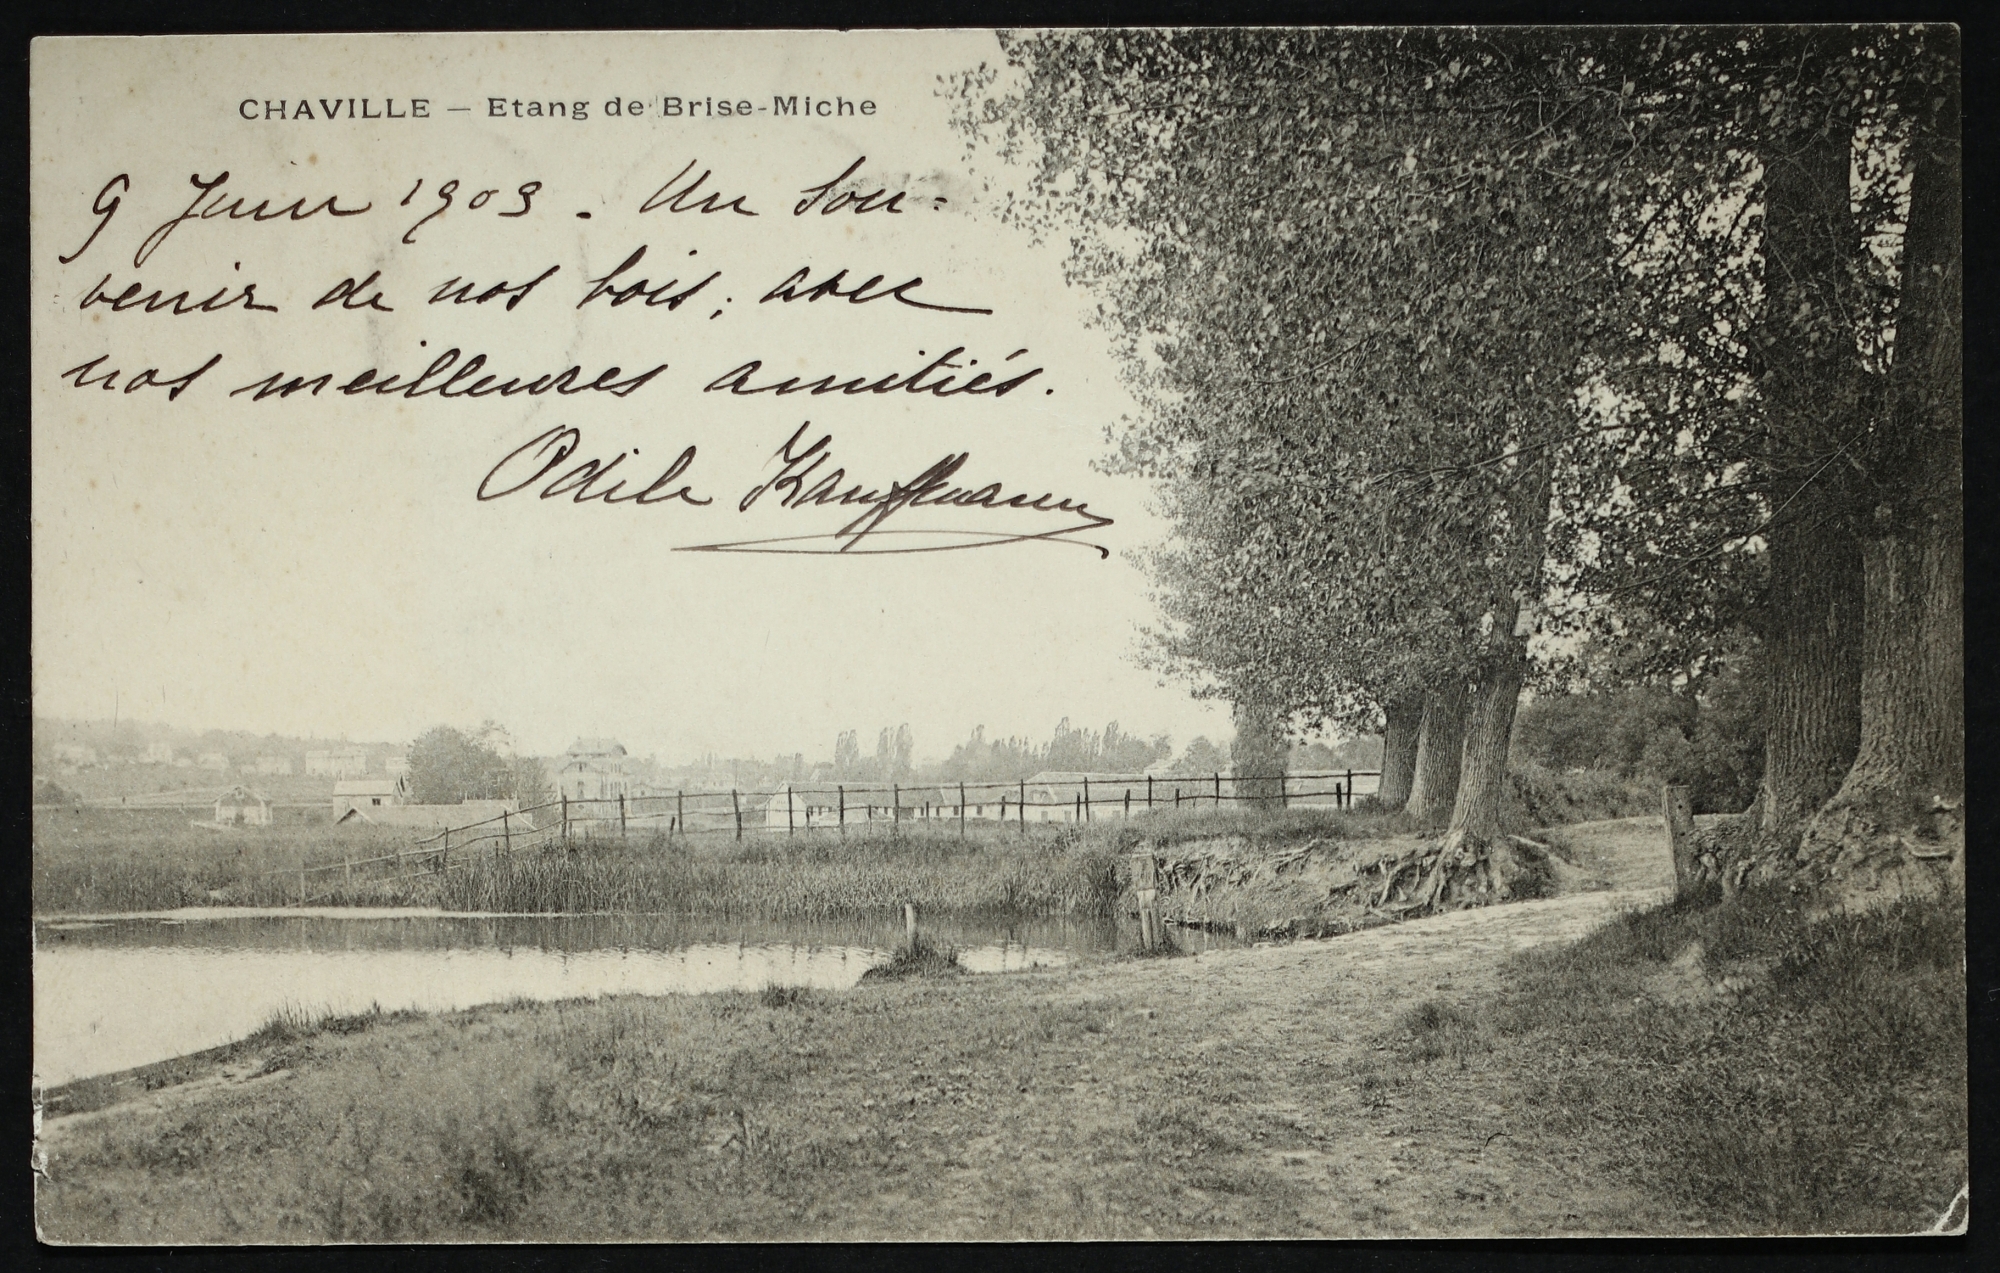 CHAVILLE — Etang de Brise-Miche
9 Juin 1903. Un Sou-
venir de nos bois, avec
nos meilleures amitiés.
Odile Kauffmann